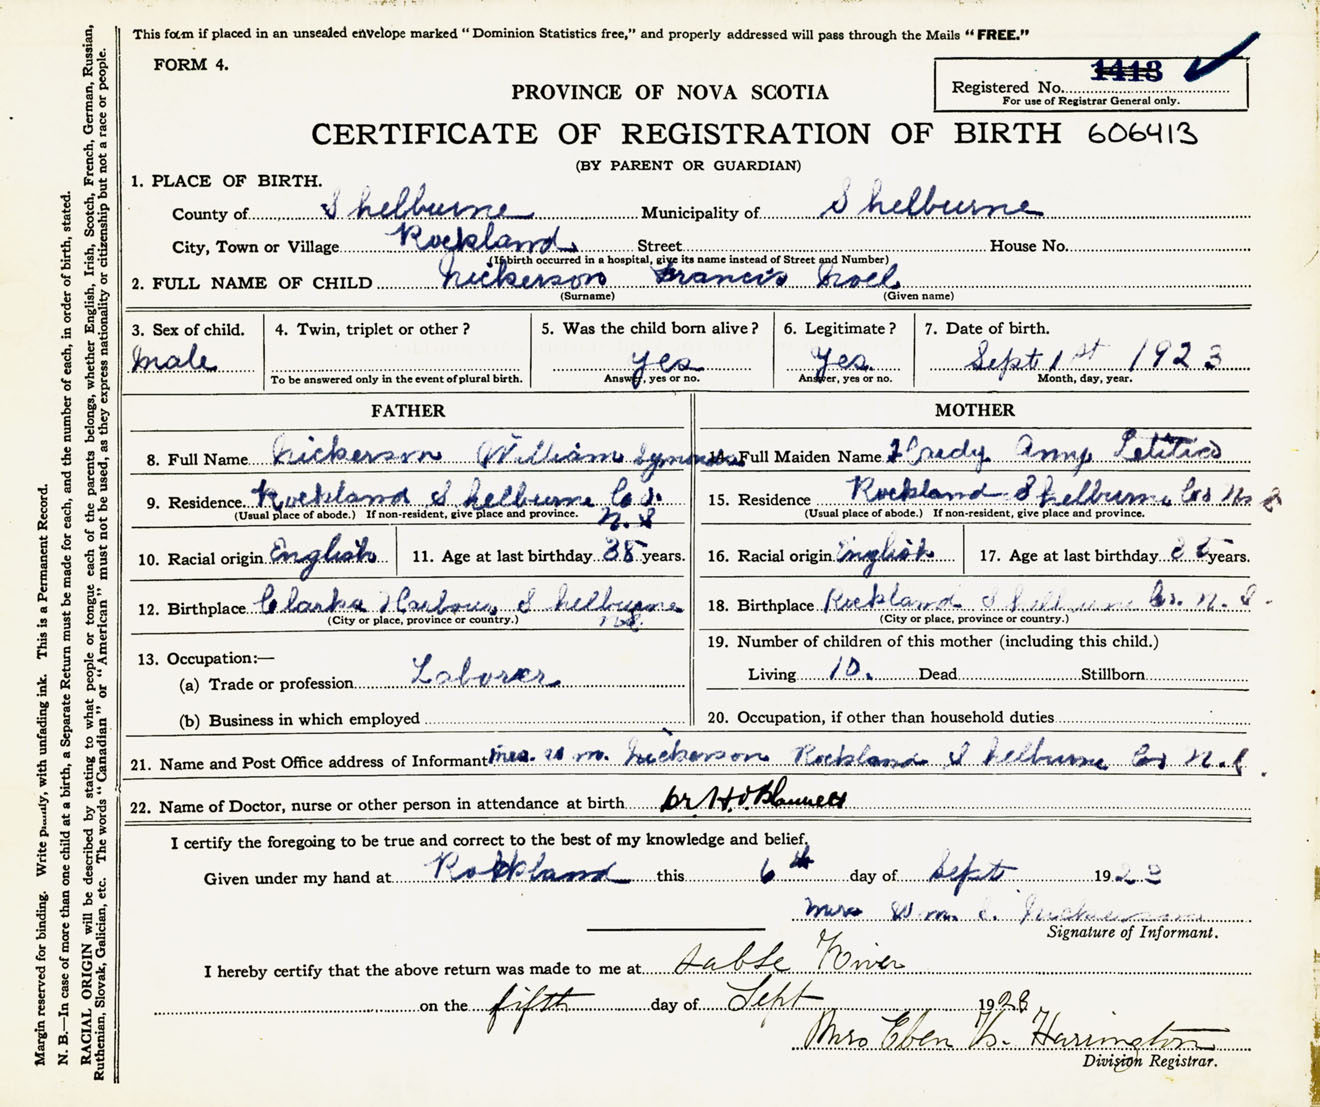 This form if placed in an unsealed envelope marked "Dominion Statistics free," and properly addressed will pass through the Mails "FREE."
FORM 4.
1413
Registered No.
For use of Registrar General only.
PROVINCE OF NOVA SCOTIA
CERTIFICATE OF REGISTRATION OF BIRTH 606413
(BY PARENT OR GUARDIAN)
1. PLACE OF BIRTH.
County of Shelburne Municipality of Shelburne
City, Town or Village Rockland Street House No.
(If birth occurred in a hospital, give its name instead of Street and Number)
2. FULL NAME OF CHILD Nickerson Francis Noel
(Surname) (Given name)
3. Sex of child. 4. Twin, triplet or other? 5. Was the child born alive? 6. Legitimate? 7. Date of birth.
Male yes yes. Sept 1st 1923
To be answered only in the event of plural birth. Answer, yes or no. Answer, yes or no. Month, day, year.
FATHER MOTHER
8. Full Name Nickerson William 14. Full Maiden Name
9. Residence Rockland Shelburne Co. 15. Residence Rockland Shelburne Co N. S
(Usual place of abode.) If non-resident, give place and province. N. S (Usual place of abode.) If non-resident, give place and province.
10. Racial origin English 11. Age at last birthday 38 years. 16. Racial origin English 17. Age at last birthday years.
12. Birthplace Clarks Harbour, Shelburne 18. Birthplace Rockland Shelburne Co. N. S.
(City or place, province or country.) N.S. (City or place, province or country.)
19. Number of children of this mother (including this child.)
13. Occupation:—
(a) Trade or profession Laborer Living 10. Dead Stillborn
(b) Business in which employed 20. Occupation, if other than household duties
21. Name and Post Office address of Informant Mrs. Wm. Nickerson Rockland Shelburne Co N.S.
22. Name of Doctor, nurse or other person in attendance at birth Dr. H.
I certify the foregoing to be true and correct to the best of my knowledge and belief,
Given under my hand at Rockland this 6th day of Sept 1923
Mrs Wm. S. Nickerson
Signature of Informant.
I hereby certify that the above return was made to me at Sable River
on the fifth day of Sept 19
Mrs Eben Harrington
Division Registrar.
Margin reserved for binding. Write with unfading ink. This is a Permanent Record.
N. B.—In case of more than one child at a birth, a Separate Return must be made for each, and the number of each, in order of birth, stated.
RACIAL ORIGIN will be described by stating to what people or tongue each of the parents belongs, whether English, Irish, Scotch, French, German, Russian,
Ruthenian, Slovak, Galician, etc. The words "Canadian" or "American" must not be used, as they express nationality or citizenship but not a race or people.